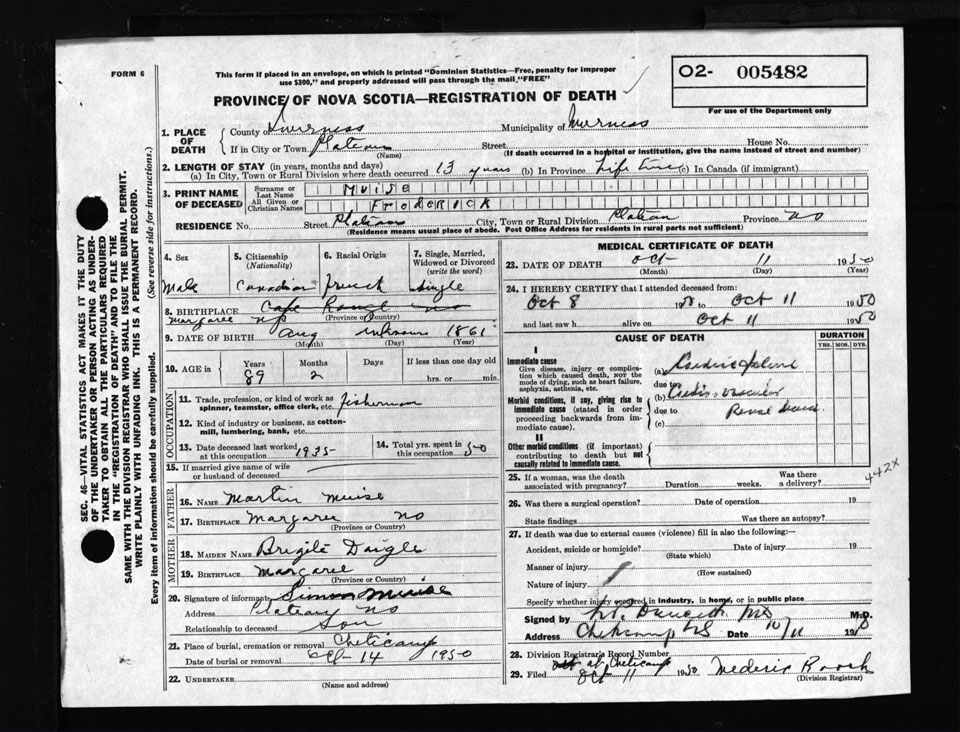 FORM 6
This form if placed in an envelope, on which is printed "Dominion Statistics—Free, penalty for improper
use $300," and properly addressed will pass through the mail "FREE"
O2- 005482
For use of the Department only
PROVINCE OF NOVA SCOTIA—REGISTRATION OF DEATH
1. PLACE OF DEATH
County of Inverness Municipality of Inverness
If in City or Town Plateau Street House No.
(Name) (If death occurred in a hospital or institution, give the name instead of street and number)
2. LENGTH OF STAY (in years, months and days)
(a) In City, Town or Rural Division where death occurred 13 years (b) In Province Life time (c) In Canada (if immigrant)
3. PRINT NAME OF DECEASED
Surname or Last Name MUISE
All Given or Christian Names FREDERICK
RESIDENCE No. Street Plateau City, Town or Rural Division Plateau Province NS
(Residence means usual place of abode. Post Office Address for residents in rural parts not sufficient)
4. Sex
Male
5. Citizenship (Nationality)
Canadian
6. Racial Origin
French
7. Single, Married, Widowed or Divorced (write the word)
Single
8. BIRTHPLACE Cape Rouge NS
Margaree NS (Province or Country)
9. DATE OF BIRTH Aug unknown 1861
(Month) (Day) (Year)
10. AGE in Years Months Days If less than one day old
89 2 hrs. or min.
OCCUPATION
11. Trade, profession, or kind of work as spinner, teamster, office clerk, etc. fisherman
12. Kind of industry or business, as cotton-mill, lumbering, bank, etc.
13. Date deceased last worked at this occupation 1935
14. Total yrs. spent in this occupation 50
15. If married give name of wife or husband of deceased
FATHER
16. NAME Martin Muise
17. BIRTHPLACE Margaree NS
(Province or Country)
MOTHER
18. MAIDEN NAME Brigite Daigle
19. BIRTHPLACE Margaree
(Province or Country)
20. Signature of informant Simon Muise
Address Plateau NS
Relationship to deceased Son
21. Place of burial, cremation or removal Cheticamp
Date of burial or removal Oct 14 1950
22. UNDERTAKER
(Name and address)
MEDICAL CERTIFICATE OF DEATH
23. DATE OF DEATH Oct 11 1950
(Month) (Day) (Year)
24. I HEREBY CERTIFY that I attended deceased from:
Oct 8 1950 to Oct 11 1950
and last saw h alive on Oct 11 1950
CAUSE OF DEATH
DURATION
YRS. MOS. DYS.
I
Immediate cause
Give disease, injury or complication which caused death, NOT the mode of dying, such as heart failure, asphyxia, asthenia, etc.
Morbid conditions, if any, giving rise to immediate cause (stated in order proceeding backwards from immediate cause).
II
Other morbid conditions (if important) contributing to death but not causally related to immediate cause.
(a)
due to
(b)
due to Renal
(c)
442X
25. If a woman, was the death associated with pregnancy? Duration weeks. Was there a delivery?
26. Was there a surgical operation? Date of operation 19
State findings Was there an autopsy?
27. If death was due to external causes (violence) fill in also the following:
Accident, suicide or homicide? Date of injury 19
(State which)
Manner of injury
(How sustained)
Nature of injury
Specify whether injury occurred in industry, in home, or in public place
Signed by M.D.
Address Cheticamp NS Date 10/11 1950
28. Division Registrar's Record Number
at Cheticamp
29. Filed Oct 11 1950 Mederic
(Division Registrar)
SEC. 46—VITAL STATISTICS ACT MAKES IT THE DUTY
OF THE UNDERTAKER OR PERSON ACTING AS UNDER-
TAKER TO OBTAIN ALL THE PARTICULARS REQUIRED
IN THE "REGISTRATION OF DEATH" AND TO FILE THE
SAME WITH THE DIVISION REGISTRAR WHO SHALL ISSUE THE BURIAL PERMIT.
WRITE PLAINLY WITH UNFADING INK. THIS IS A PERMANENT RECORD.
Every item of information should be carefully supplied. (See reverse side for instructions.)